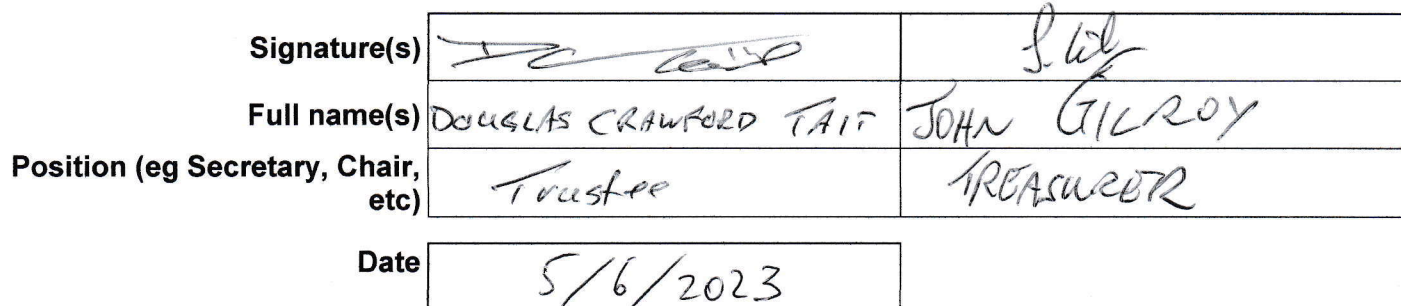 Signature(s) DC Tait
Full name(s) DOUGLAS CRAWFORD TAIT JOHN GILROY
Position (eg Secretary, Chair, etc) Trustee TREASURER
Date 5/6/2023